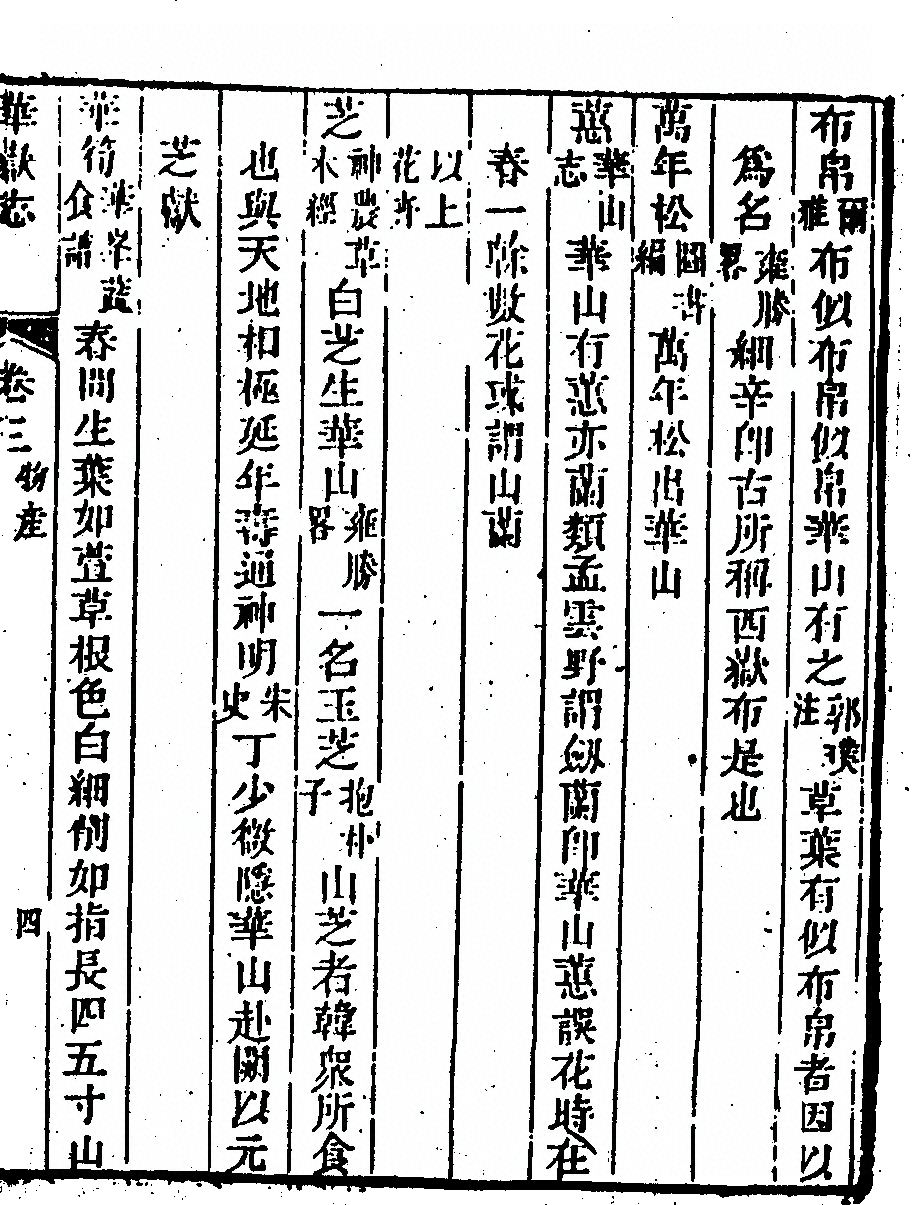 布帛爾雅布似布帛似帛華山有之郭璞注草葉有似布帛者因以
爲名雍勝畧細辛卽古所稱西嶽布是也
萬年松圖書編萬年松出華山
蕙華山志華山有蕙亦蘭類孟雲野謂劔蘭卽華山蕙誤花時在
春一榦數花球謂山蘭
以上花卉
芝神農草木經白芝生華山雍勝畧一名玉芝抱朴子山芝者韓衆所食
也與天地相極延年壽通神明朱史丁少微隱華山赴闕以元
芝獻
華筍華峯蓝食譜春間生葉如萱草根色白細削如指長四五寸山
華嶽志
卷三
物產
四